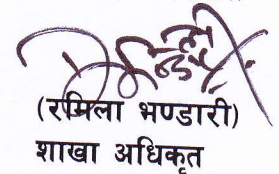 (रमिला भण्डारी)
शाखा अधिकृत